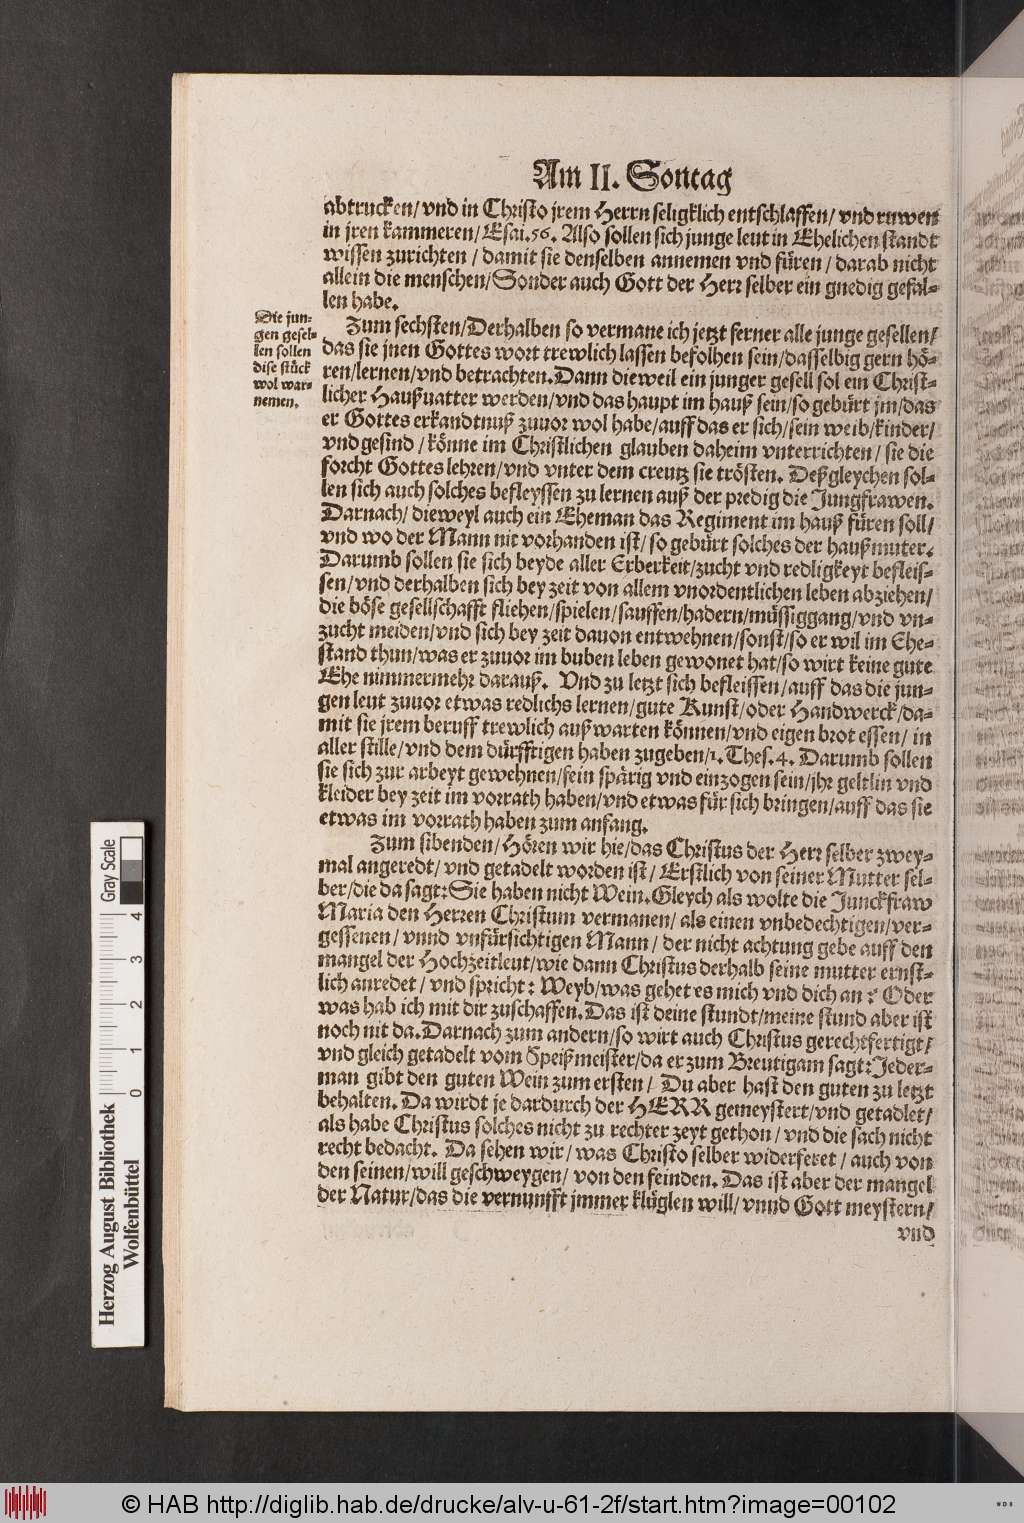 Am II. Sontag
abtrucken/ vnd in Christo jrem Herrn seligklich entschlaffen/ vnd ruwen
in jren kammeren/ Esai.56. Also sollen sich junge leut in Ehelichen standt
wissen zurichten / damit sie denselben annemen vnd füren / darab nicht
allein die menschen/ Sonder auch Gott der Herr selber ein gnedig gefal-
len habe.
Die jun-
gen gesel-
len sollen
dise stück
wol war-
nemen.
Zum sechsten/ Derhalben so vermane ich jetzt ferner alle junge gesellen/
das sie jnen Gottes wort trewlich lassen befolhen sein/ dasselbig gern hö-
ren/ lernen/ vnd betrachten. Dann dieweil ein junger gesell sol ein Christ-
licher Haußuatter werden/ vnd das haupt im hauß sein/ so gebürt jm/ das
er Gottes erkandtnuß zuuor wol habe/ auff das er sich/ sein weib/ kinder/
vnd gesind / könne im Christlichen glauben daheim vnterrichten/ sie die
forcht Gottes lehren/ vnd vnter dem creutz sie trösten. Deßgleychen sol-
len sich auch solches befleyssen zu lernen auß der predig die Jungfrawen.
Darnach/ dieweyl auch ein Eheman das Regiment im hauß füren soll/
vnd wo der Mann nit vorhanden ist/ so gebürt solches der haußmuter.
Darumb sollen sie sich beyde aller Erberkeit/ zucht vnd redligkeyt befleis-
sen/ vnd derhalben sich bey zeit von allem vnordentlichen leben abziehen/
die böse gesellschafft fliehen/ spielen/ sauffen/ hadern/ müssiggang/ vnd vn-
zucht meiden/ vnd sich bey zeit dauon entwehnen/ sonst/ so er wil im Ehe-
stand thun/ was er zuuor im buben leben gewonet hat/ so wirt keine gute
Ehe nimmermehr darauß. Vnd zu letzt sich befleissen/ auff das die jun-
gen leut zuuor etwas redlichs lernen/ gute Kunst/ oder Handwerck/ da-
mit sie jrem beruff trewlich außwarten können/ vnd eigen brot essen/ in
aller stille/ vnd dem dürfftigen haben zugeben/ 1. Thes. 4. Darumb sollen
sie sich zur arbeyt gewehnen/ fein spärig vnd einzogen sein/ jhr geltlin vnd
kleider bey zeit im vorrath haben/ vnd etwas für sich bringen/ auff das sie
etwas im vorrath haben zum anfang.
Zum sibenden/ Hören wir hie/ das Christus der Herr selber zwey-
mal angeredt/ vnd getadelt worden ist/ Erstlich von seiner Mutter sel-
ber/ die da sagt: Sie haben nicht Wein. Gleych als wolte die Junckfraw
Maria den Herren Christum vermanen/ als einen vnbedechtigen/ ver-
gessenen/ vnnd vnfürsichtigen Mann/ der nicht achtung gebe auff den
mangel der Hochzeitleut/ wie dann Christus derhalb seine mutter ernst-
lich anredet/ vnd spricht: Weyb/ was gehet es mich vnd dich an? Oder
was hab ich mit dir zuschaffen. Das ist deine stundt/ meine stund aber ist
noch nit da. Darnach zum andern/ so wirt auch Christus gerechtfertigt/
vnd gleich getadelt vom Speißmeister/ da er zum Breutigam sagt: Jeder-
man gibt den guten Wein zum ersten/ Du aber hast den guten zu letzt
behalten. Da wirdt je dardurch der HERR gemeystert/ vnd getadlet/
als habe Christus solches nicht zu rechter zeyt gethon/ vnd die sach nicht
recht bedacht. Da sehen wir/ was Christo selber widerferet / auch von
den seinen/ will geschweygen/ von den feinden. Das ist aber der mangel
der Natur/ das die vernunfft jmmer klüglen will/ vnnd Gott meystern/
vnd
Gray Scale
0 1 2 3 4
Herzog August Bibliothek
Wolfenbüttel
© HAB http://diglib.hab.de/drucke/alv-u-61-2f/start.htm?image=00102
WDB